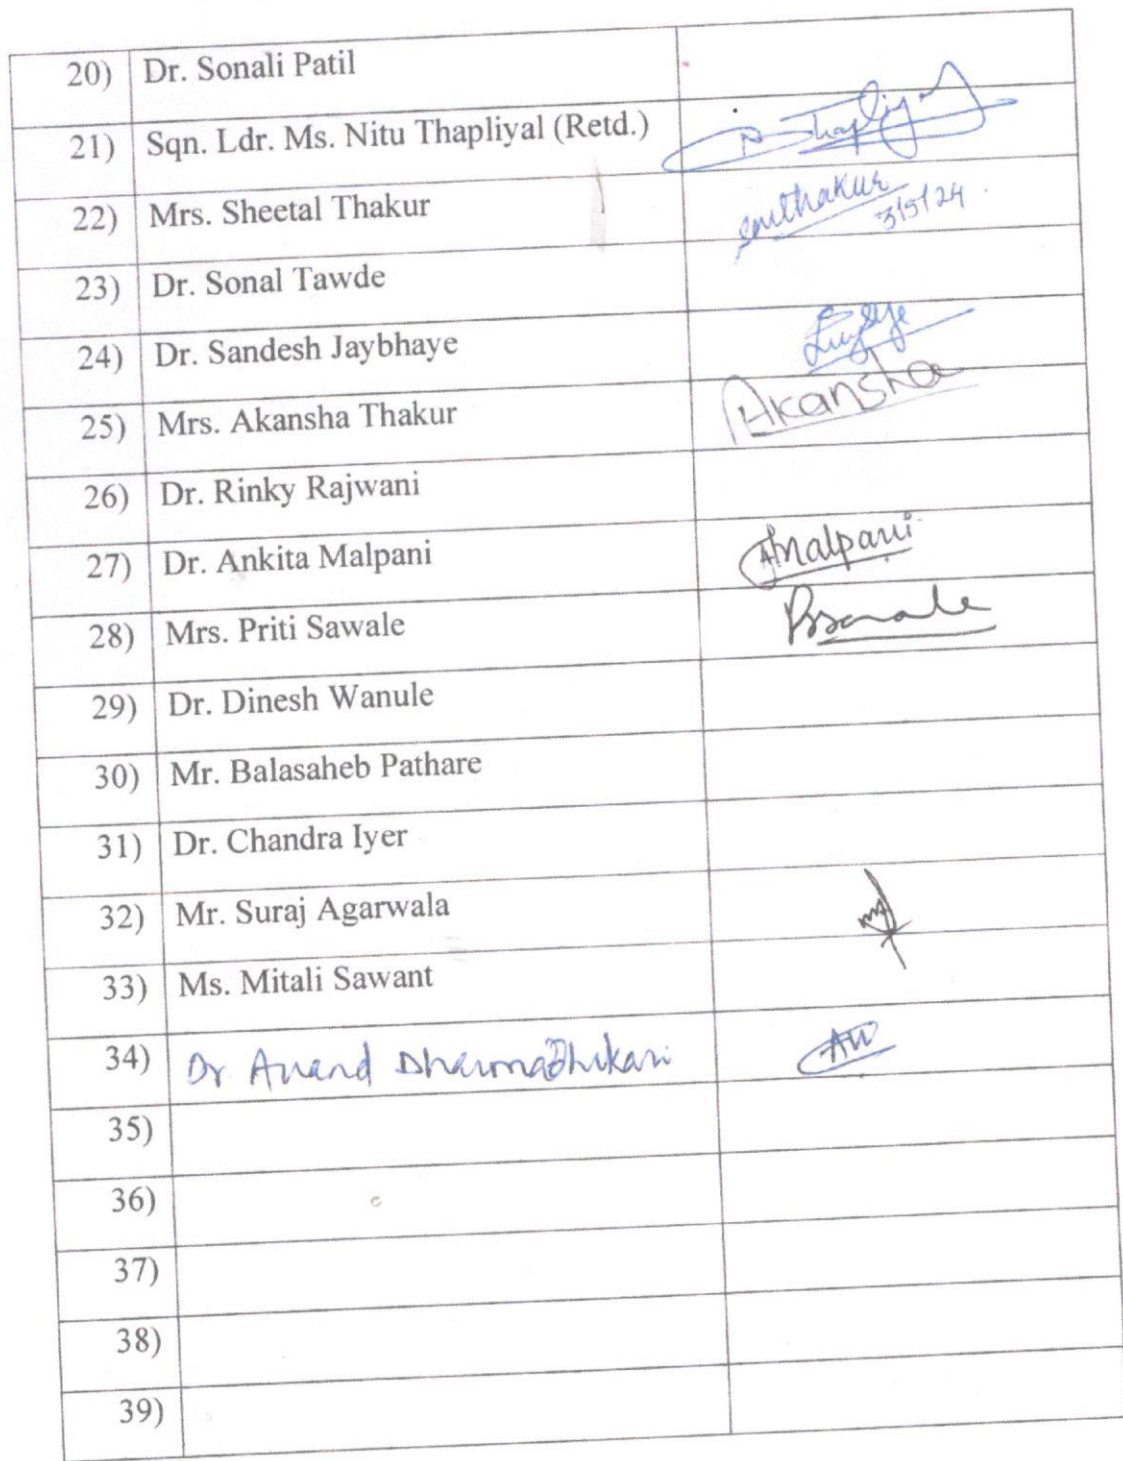 20) Dr. Sonali Patil
21) Sqn. Ldr. Ms. Nitu Thapliyal (Retd.)
22) Mrs. Sheetal Thakur 3/5/24
23) Dr. Sonal Tawde
24) Dr. Sandesh Jaybhaye
25) Mrs. Akansha Thakur Akansha
26) Dr. Rinky Rajwani
27) Dr. Ankita Malpani AMalpani
28) Mrs. Priti Sawale
29) Dr. Dinesh Wanule
30) Mr. Balasaheb Pathare
31) Dr. Chandra Iyer
32) Mr. Suraj Agarwala
33) Ms. Mitali Sawant
34) Dr Anand Dharmadhikari
35)
36)
37)
38)
39)